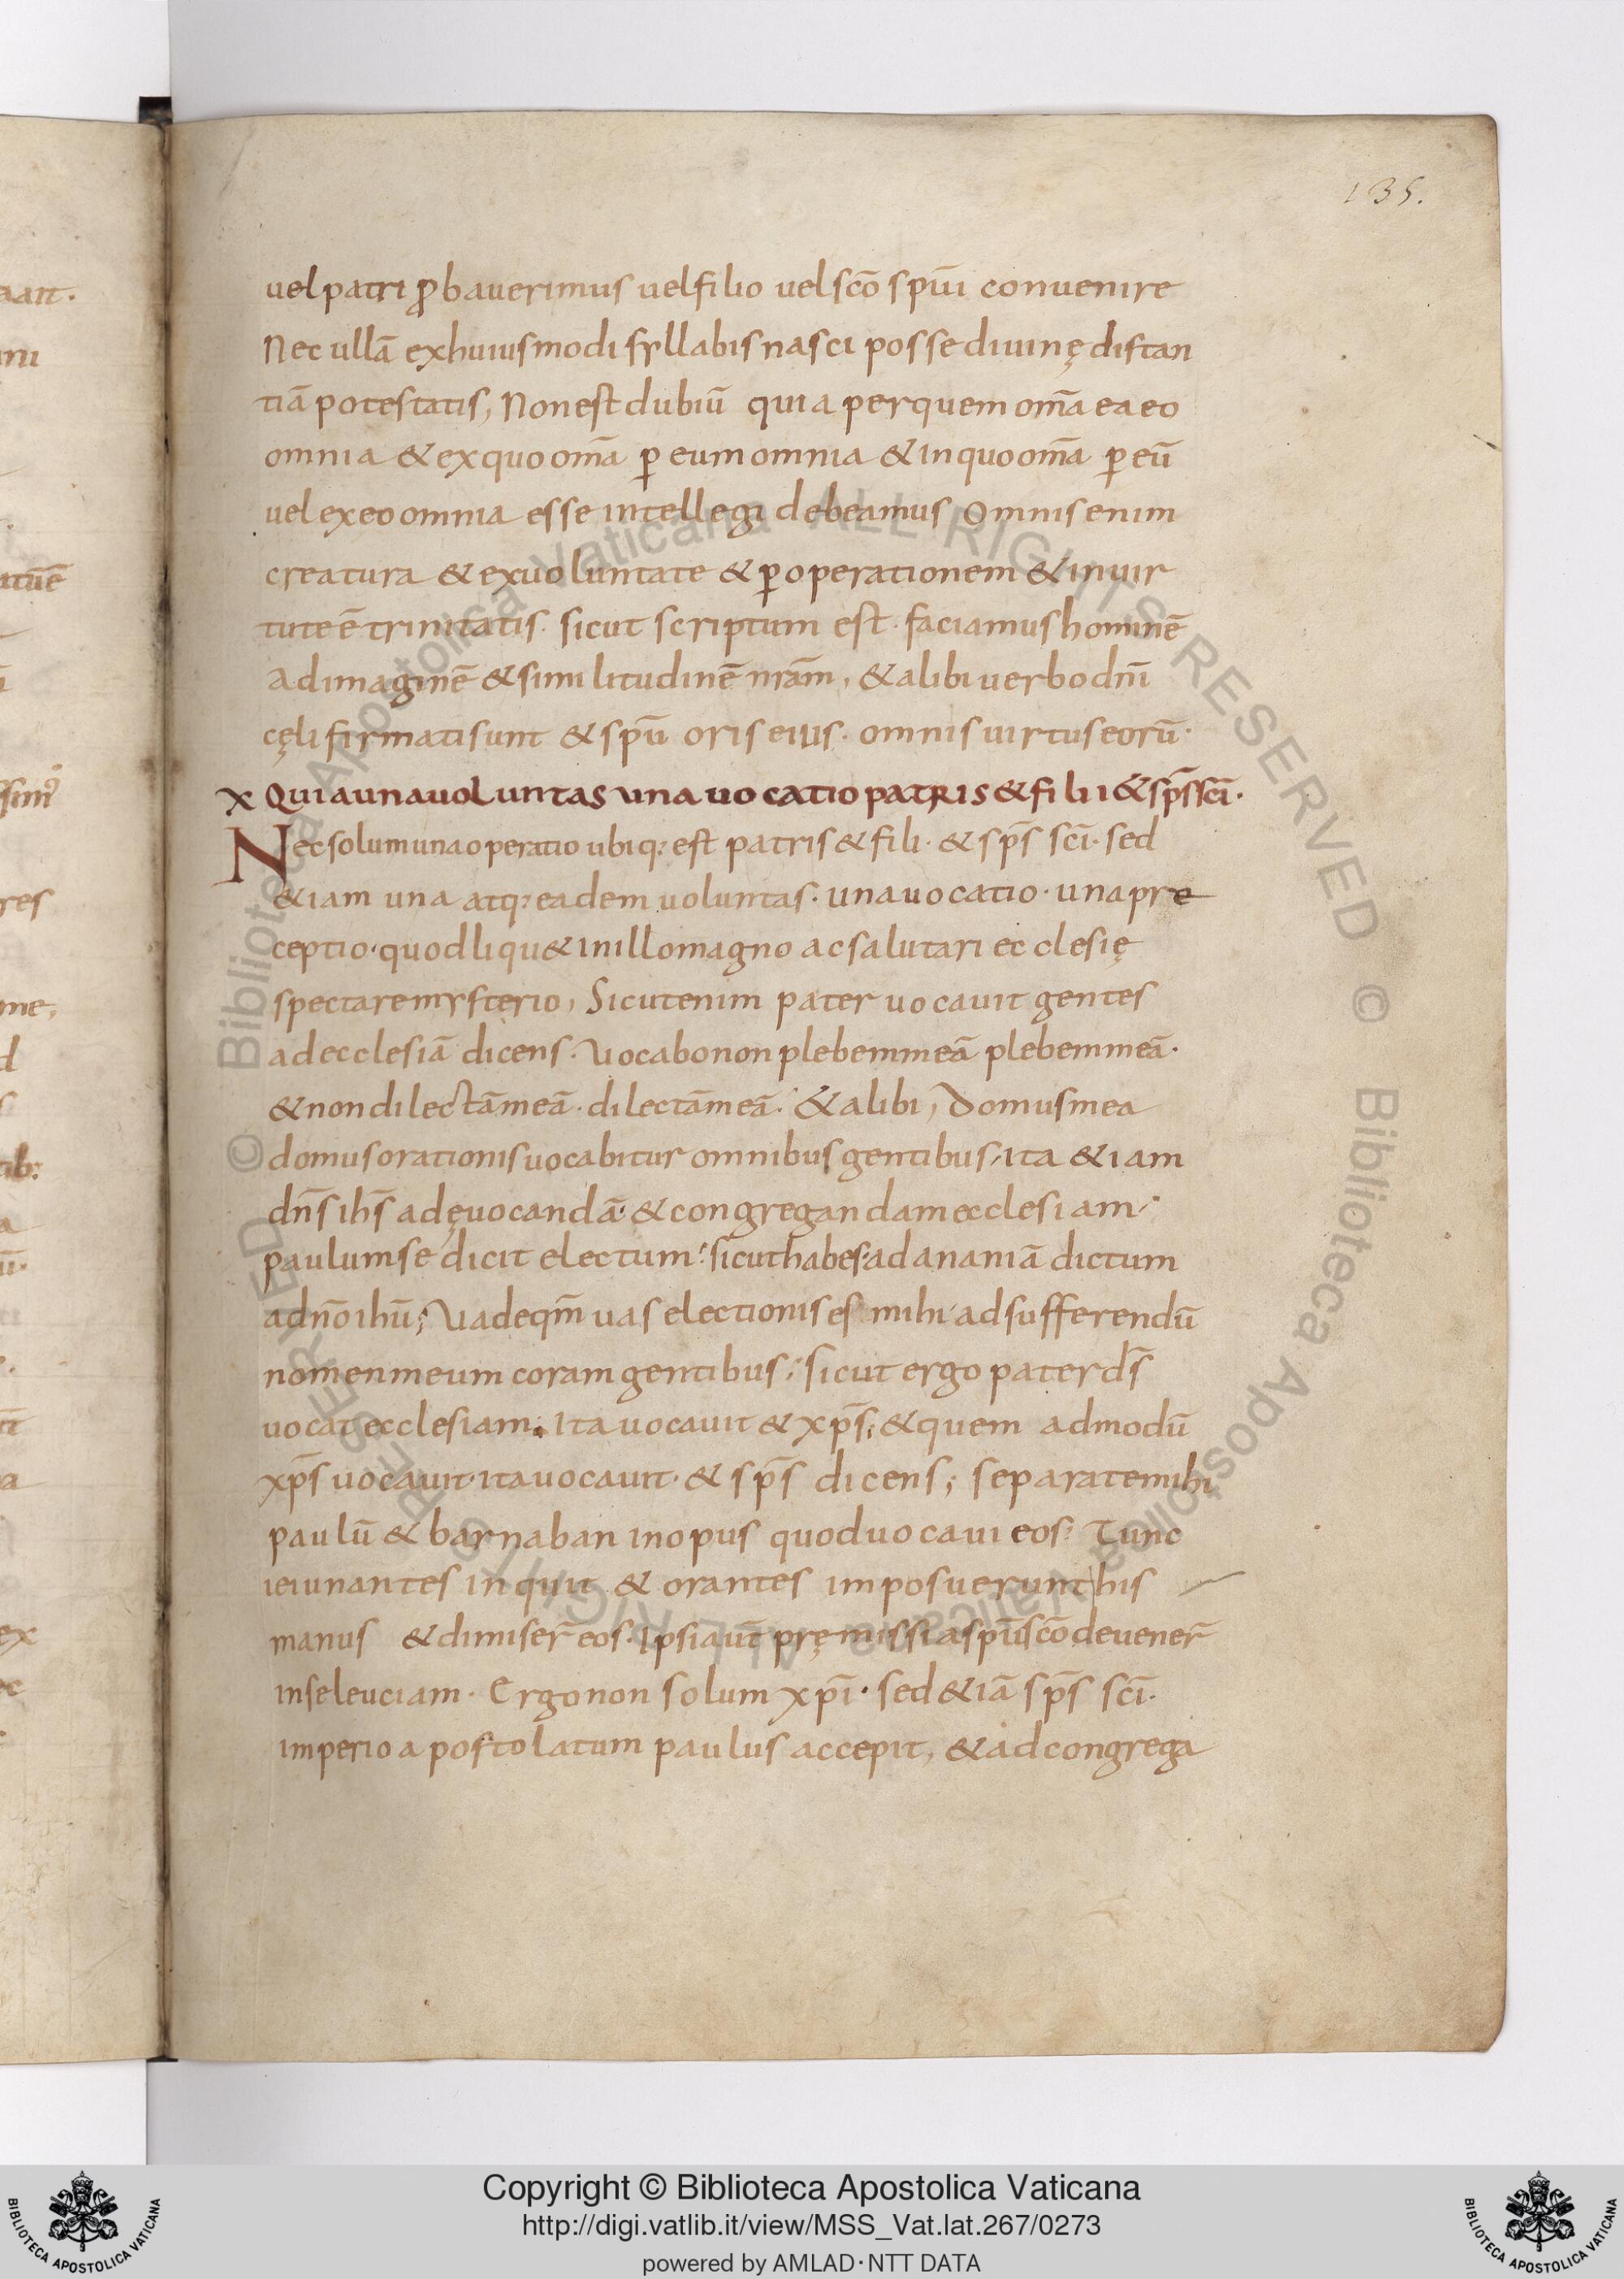 135.
uel patri ꝓbauerimus uel filio uel sc̄o spūi conuenire
Nec ullā ex huiusmodi syllabis nasci posse diuinę distan
tiā potestatis, Non est dubiū quia per quem om̄a ea eo
omnia & ex quo om̄a ꝑ eum omnia & in quo om̄a ꝑ eū
uel ex eo omnia esse intellegi debeamus Omnis enim
creatura & ex uoluntate & ꝑ operationem & in uir
tute ē trinitatis. sicut scriptum est. faciamus hominē
Ad imaginē & similitudinē nrām, & alibi uerbo dnī
cęli firmati sunt & spū oris eius. omnis uirtus eorū.
X Quia una uoluntas una uocatio patris & filii & sps̄ sci̅.
Nec solum una operatio ubiq; est patris & fili. & sps̄ sci̅. sed
&iam una atq; eadem uoluntas. una uocatio. una pre
ceptio. quod liqu& in illo magno ac salutari ecclesię
spectare mysterio, Sicut enim pater uocauit gentes
ad ecclesiā dicens. Uocabo non plebem meā plebem meā.
& non dilectā meā. dilectā meā. & alibi, Domus mea
domus orationis uocabitur omnibus gentibus, ita &iam
dns̄ ihs̄ ad ęuocandā. & congregandam ecclesiam.
paulum se dicit electum. sicut habes. ad ananiā dictum
a dnō ihū; Uade qm̄ uas electionis es mihi ad sufferendū
nomen meum coram gentibus; sicut ergo pater ds̄
uocat ecclesiam. Ita uocauit & xps̄; & quem admodū
xps̄ uocauit. ita uocauit. & sps̄ dicens; separate mihi
paulū & barnaban in opus quod uocaui eos: Tunc
ieiunantes inquit & orantes imposuerunt his
manus & dimiser̄ eos. Ipsi aut̄ pręmissi a spūscō deuener̄
in seleuciam. Ergo non solum xpi̅. sed &iā sps̄ sci̅.
imperio apostolatum paulus accepit, & ad congrega
Copyright © Biblioteca Apostolica Vaticana
http://digi.vatlib.it/view/MSS_Vat.lat.267/0273
powered by AMLAD · NTT DATA
BIBLIOTECA APOSTOLICA VATICANA
BIBLIOTECA APOSTOLICA VATICANA
© Biblioteca Apostolica Vaticana ALL RIGHTS RESERVED © Biblioteca Apostolica Vaticana ALL RIGHTS RESERVED